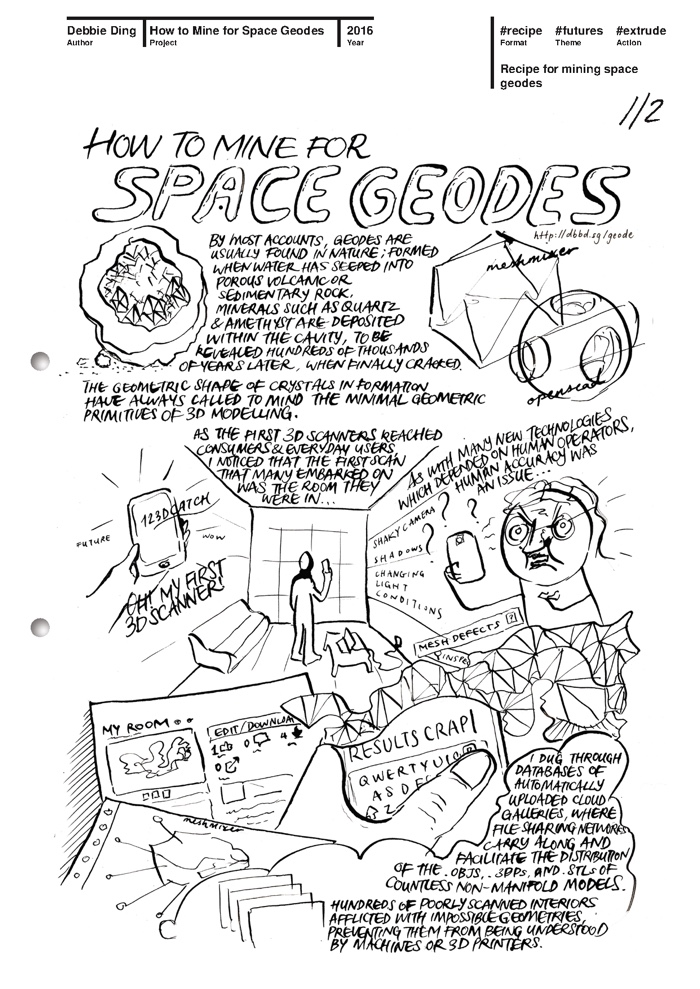 Debbie Ding
Author
How to Mine for Space Geodes
Project
2016
Year
#recipe
Format
#futures
Theme
#extrude
Action
Recipe for mining space
geodes
1/2
HOW TO MINE FOR
SPACE GEODES
http://dbbd.sg/geode
BY MOST ACCOUNTS, GEODES ARE
USUALLY FOUND IN NATURE; FORMED
WHEN WATER HAS SEEPED INTO
POROUS VOLCANIC OR
SEDIMENTARY ROCK.
MINERALS SUCH AS QUARTZ
& AMETHYST ARE DEPOSITED
WITHIN THE CAVITY, TO BE
REVEALED HUNDREDS OF THOUSANDS
OF YEARS LATER, WHEN FINALLY CRACKED.
meshmixer
openscad
THE GEOMETRIC SHAPE OF CRYSTALS IN FORMATION
HAVE ALWAYS CALLED TO MIND THE MINIMAL GEOMETRIC
PRIMITIVES OF 3D MODELLING.
AS THE FIRST 3D SCANNERS REACHED
CONSUMERS & EVERYDAY USERS
I NOTICED THAT THE FIRST SCAN
THAT MANY EMBARKED ON
WAS THE ROOM THEY
WERE IN...
AS WITH MANY NEW TECHNOLOGIES
WHICH DEPENDED ON HUMAN OPERATORS,
HUMAN ACCURACY WAS
AN ISSUE...
123D CATCH
FUTURE
NOW
OH! MY FIRST
3D SCANNER!
SHAKY CAMERA
?
?
?
SHADOWS
CHANGING
LIGHT
CONDITIONS
MESH DEFECTS ?
MY ROOM
EDIT/DOWNLOA
1
0
4
0
RESULTS CRAP|
QWERTYUIO
ASDF
Z
meshmixer
I DUG THROUGH
DATABASES OF
AUTOMATICALLY
UPLOADED CLOUD
GALLERIES, WHERE
FILE-SHARING NETWORKS
CARRY ALONG AND
FACILITATE THE DISTRIBUTION
OF THE .OBJS, .3DPs, AND .STLs OF
COUNTLESS NON-MANIFOLD MODELS.
HUNDREDS OF POORLY SCANNED INTERIORS
AFFLICTED WITH IMPOSSIBLE GEOMETRIES,
PREVENTING THEM FROM BEING UNDERSTOOD
BY MACHINES OR 3D PRINTERS.